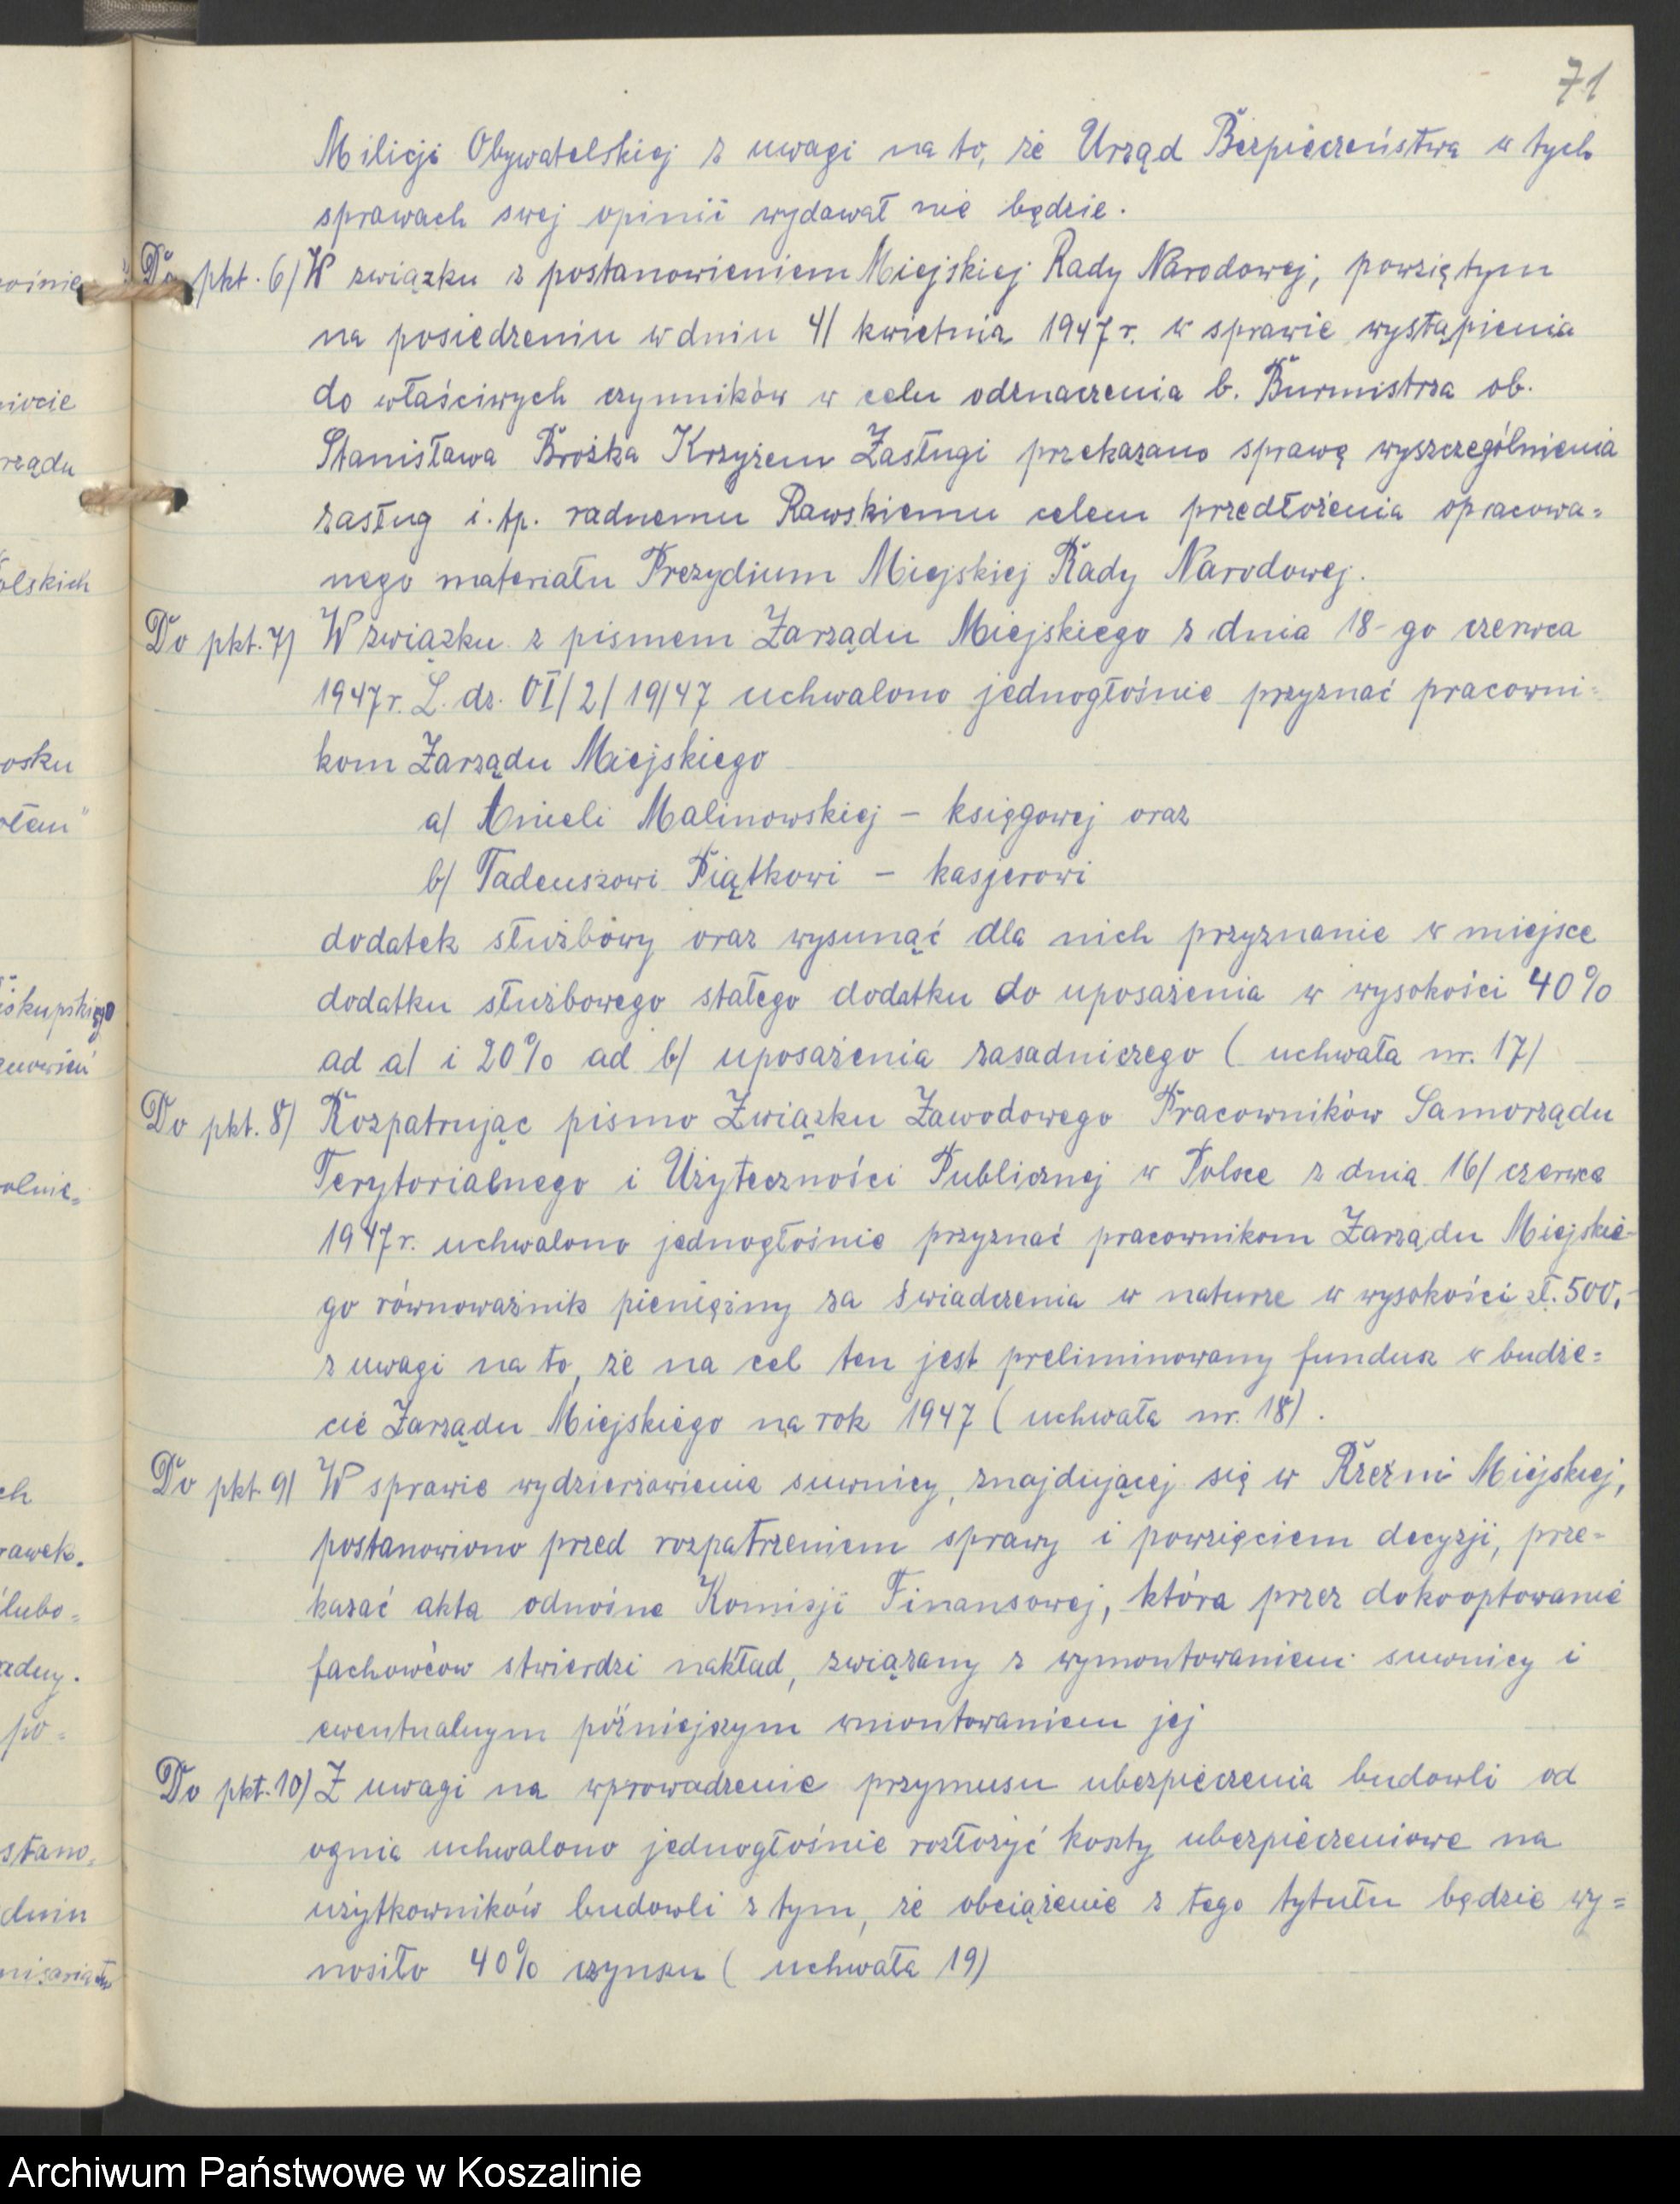 71
Milicji Obywatelskiej z uwagi na to, że Urząd Bezpieczeństwa w tych
sprawach swej opinii wydawał nie będzie.
Do pkt. 6/ W związku z postanowieniem Miejskiej Rady Narodowej, powziętym
na posiedzeniu w dniu 4/ kwietnia 1947 r. w sprawie wystąpienia
do właściwych czynników w celu odznaczenia b. Burmistrza ob.
Stanisława Brożka Krzyżem Zasługi przekazano sprawę wyszczególnienia
zasług i.tp. radnemu Rawskiemu celem przedłożenia opracowa=
nego materiału Prezydium Miejskiej Rady Narodowej.
Do pkt. 7/ W związku z pismem Zarządu Miejskiego z dnia 18-go czerwca
1947 r. L. dz. VI/2/19/47 uchwalono jednogłośnie przyznać pracowni=
kom Zarządu Miejskiego
a/ Anieli Malinowskiej – księgowej oraz
b/ Tadeuszowi Piątkowi – kasjerowi
dodatek służbowy oraz wysunąć dla nich przyznanie w miejsce
dodatku służbowego stałego dodatku do uposażenia w wysokości 40%
ad a/ i 20% ad b/ uposażenia zasadniczego ( uchwała nr. 17/
Do pkt. 8/ Rozpatrując pismo Związku Zawodowego Pracowników Samorządu
Terytorialnego i Użyteczności Publicznej w Polsce z dnia 16/ czerwca
1947 r. uchwalono jednogłośnie przyznać pracownikom Zarządu Miejskie-
go równoważnik pieniężny za świadczenia w naturze w wysokości zł. 500,-
z uwagi na to, że na cel ten jest preliminowany fundusz w budże=
cie Zarządu Miejskiego na rok 1947 ( uchwała nr. 18/ .
Do pkt. 9/ W sprawie wydzierżawienia suwnicy, znajdującej się w Rzeźni Miejskiej,
postanowiono przed rozpatrzeniem sprawy i powzięciem decyzji, prze=
kazać akta odnośne Komisji Finansowej, która przez dokooptowanie
fachowców stwierdzi nakład, związany z wymontowaniem suwnicy i
ewentualnym późniejszym wmontowaniem jej
Do pkt. 10/ Z uwagi na wprowadzenie przymusu ubezpieczenia budowli od
ognia uchwalono jednogłośnie rozłożyć koszty ubezpieczeniowe na
użytkowników budowli z tym, że obciążenie z tego tytułu będzie wy=
nosiło 40% czynszu ( uchwała 19/
Archiwum Państwowe w Koszalinie